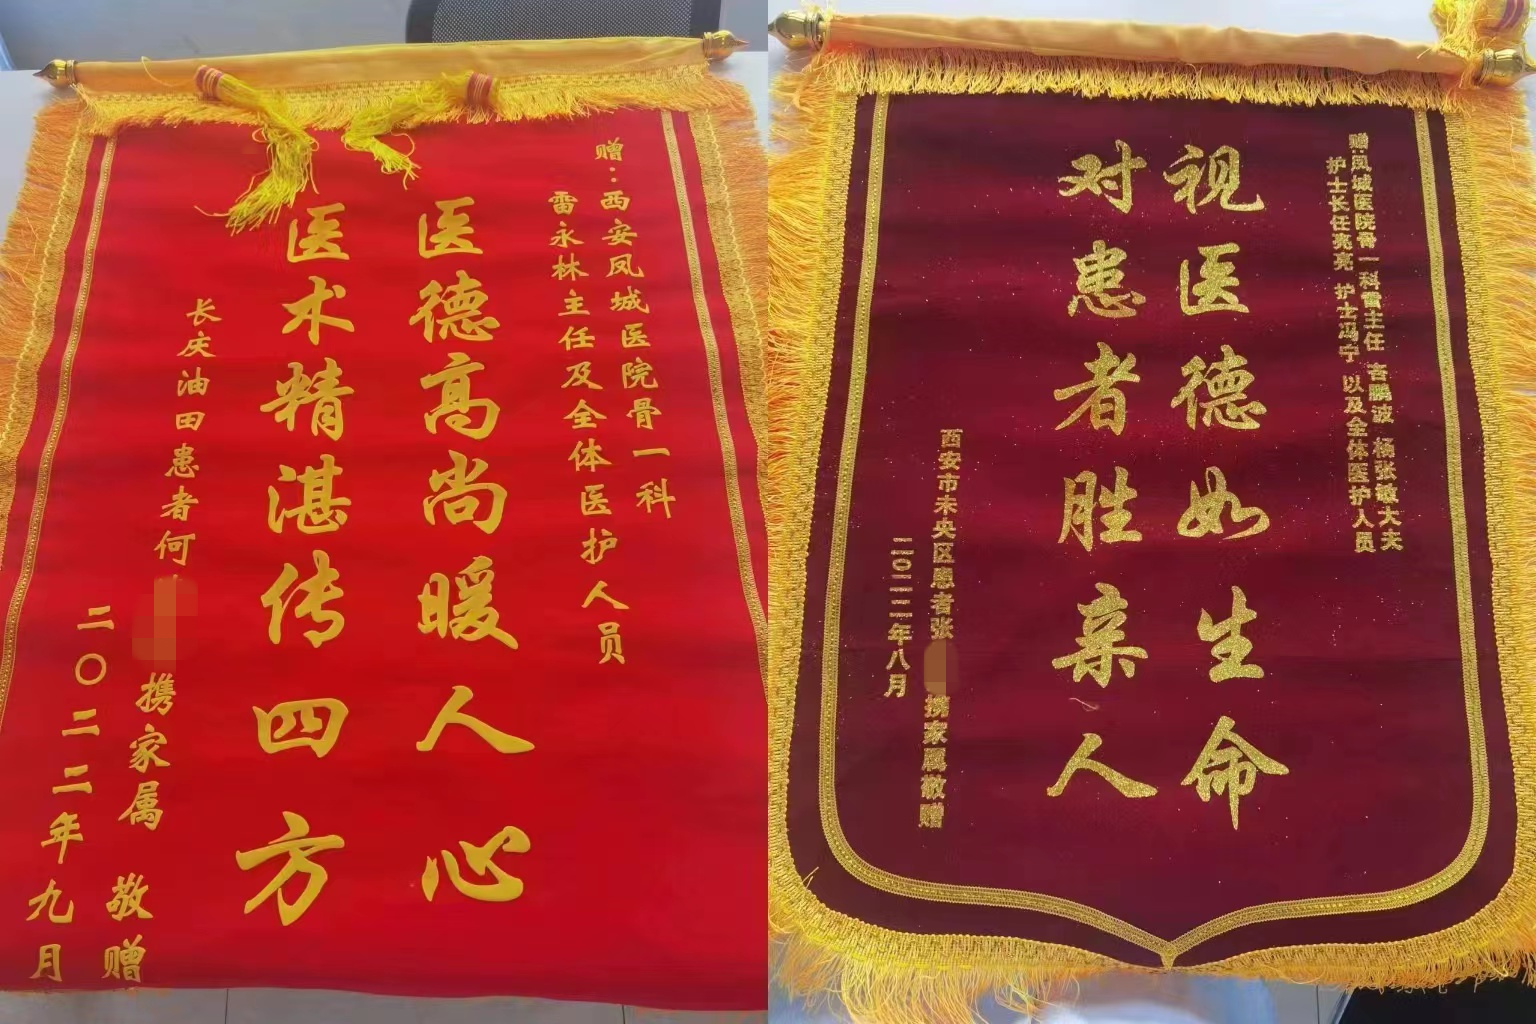 赠：西安凤城医院骨一科
雷永林主任及全体医护人员
医德高尚暖人心
医术精湛传四方
长庆油田患者何
携家属 敬赠
二〇二二年九月
赠:凤城医院骨一科雷主任 吉鹏波 杨张敏大夫
护士长任亮亮 护士冯宁 以及全体医护人员
视医德如生命
对患者胜亲人
西安市未央区患者张 携家属敬赠
二〇二二年八月